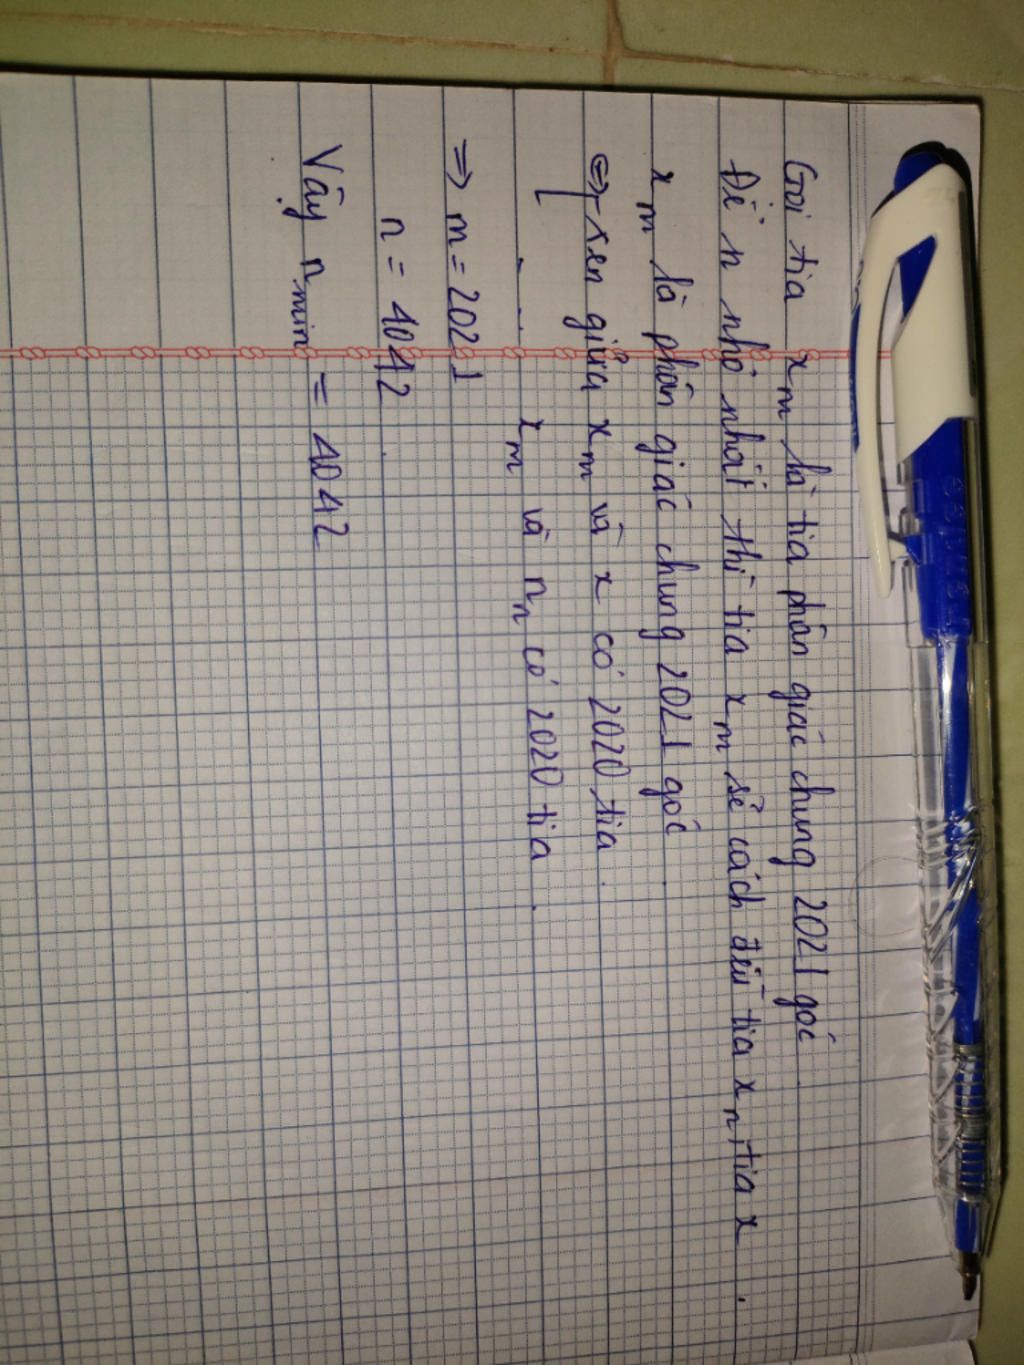 Gọi tia xm là tia phân giác chung 2021 góc
Để n nhỏ nhất thì tia xm sẽ cách đều tia xn, tia x.
xm là phân giác chung 2021 góc
⇔ xen giữa xm và x có 2020 tia.
xm và nn có 2020 tia.
⇒ m = 2021
n = 4042
Vậy nmin = 4042